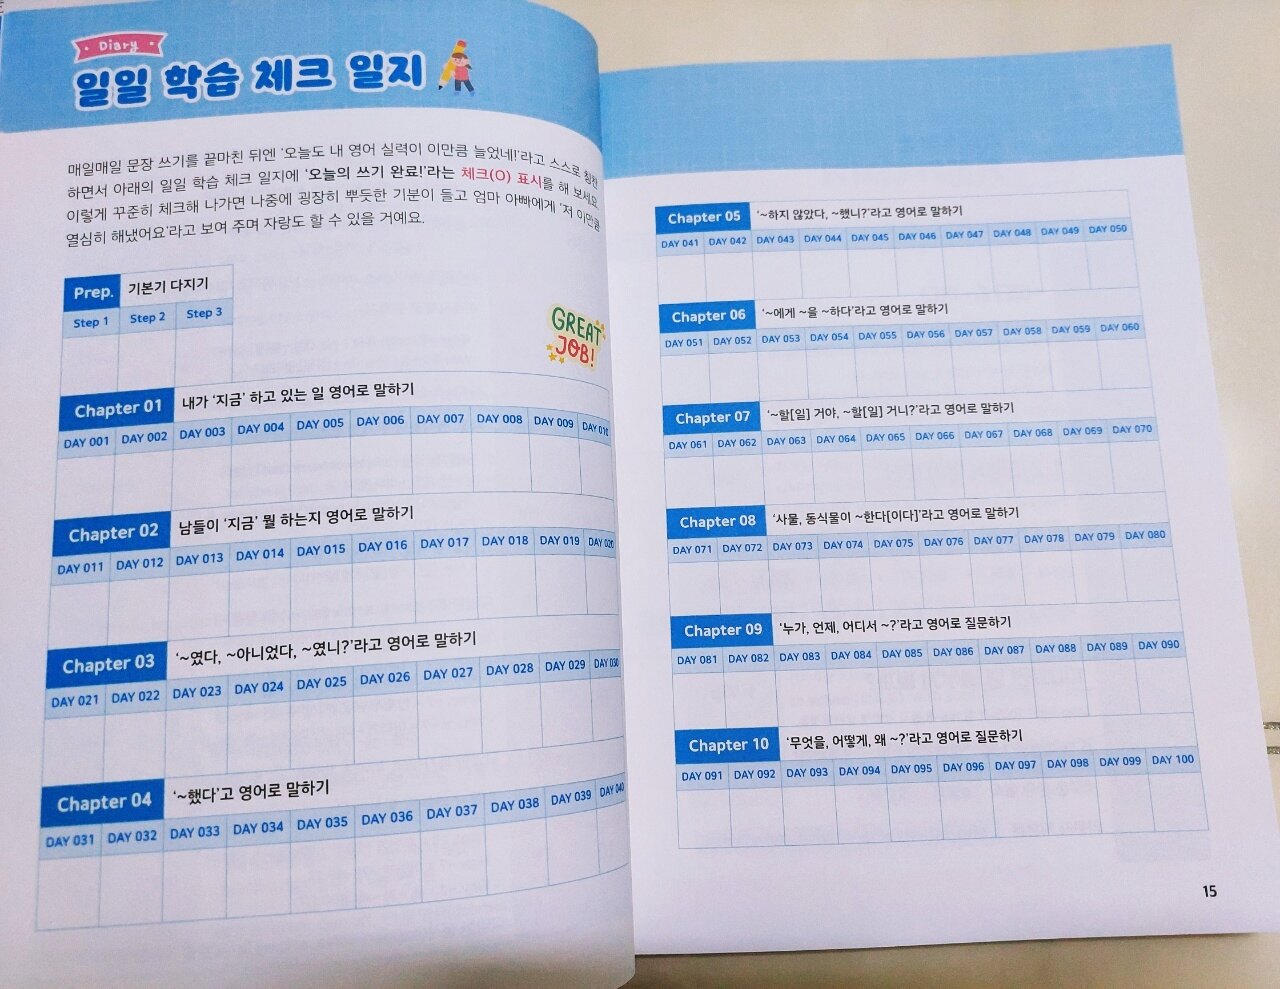 Diary
일일 학습 체크 일지
매일매일 문장 쓰기를 끝마친 뒤엔 '오늘도 내 영어 실력이 이만큼 늘었네!'라고 스스로 칭찬
하면서 아래의 일일 학습 체크 일지에 '오늘의 쓰기 완료!'라는 체크(O) 표시를 해 보세요.
이렇게 꾸준히 체크해 나가면 나중에 굉장히 뿌듯한 기분이 들고 엄마 아빠에게 '저 이만큼
열심히 해냈어요'라고 보여 주며 자랑도 할 수 있을 거예요.
Prep. 기본기 다지기
Step 1 Step 2 Step 3
GREAT
JOB!
Chapter 01 내가 '지금' 하고 있는 일 영어로 말하기
DAY 001 DAY 002 DAY 003 DAY 004 DAY 005 DAY 006 DAY 007 DAY 008 DAY 009 DAY 010
Chapter 02 남들이 '지금' 뭘 하는지 영어로 말하기
DAY 011 DAY 012 DAY 013 DAY 014 DAY 015 DAY 016 DAY 017 DAY 018 DAY 019 DAY 020
Chapter 03 '~였다, ~아니었다, ~였니?'라고 영어로 말하기
DAY 021 DAY 022 DAY 023 DAY 024 DAY 025 DAY 026 DAY 027 DAY 028 DAY 029 DAY 030
Chapter 04 '~했다'고 영어로 말하기
DAY 031 DAY 032 DAY 033 DAY 034 DAY 035 DAY 036 DAY 037 DAY 038 DAY 039 DAY 040
Chapter 05 '~하지 않았다, ~했니?'라고 영어로 말하기
DAY 041 DAY 042 DAY 043 DAY 044 DAY 045 DAY 046 DAY 047 DAY 048 DAY 049 DAY 050
Chapter 06 '~에게 ~을 ~하다'라고 영어로 말하기
DAY 051 DAY 052 DAY 053 DAY 054 DAY 055 DAY 056 DAY 057 DAY 058 DAY 059 DAY 060
Chapter 07 '~할[일] 거야, ~할[일] 거니?'라고 영어로 말하기
DAY 061 DAY 062 DAY 063 DAY 064 DAY 065 DAY 066 DAY 067 DAY 068 DAY 069 DAY 070
Chapter 08 '사물, 동식물이 ~한다[이다]'라고 영어로 말하기
DAY 071 DAY 072 DAY 073 DAY 074 DAY 075 DAY 076 DAY 077 DAY 078 DAY 079 DAY 080
Chapter 09 '누가, 언제, 어디서 ~?'라고 영어로 질문하기
DAY 081 DAY 082 DAY 083 DAY 084 DAY 085 DAY 086 DAY 087 DAY 088 DAY 089 DAY 090
Chapter 10 '무엇을, 어떻게, 왜 ~?'라고 영어로 질문하기
DAY 091 DAY 092 DAY 093 DAY 094 DAY 095 DAY 096 DAY 097 DAY 098 DAY 099 DAY 100
15